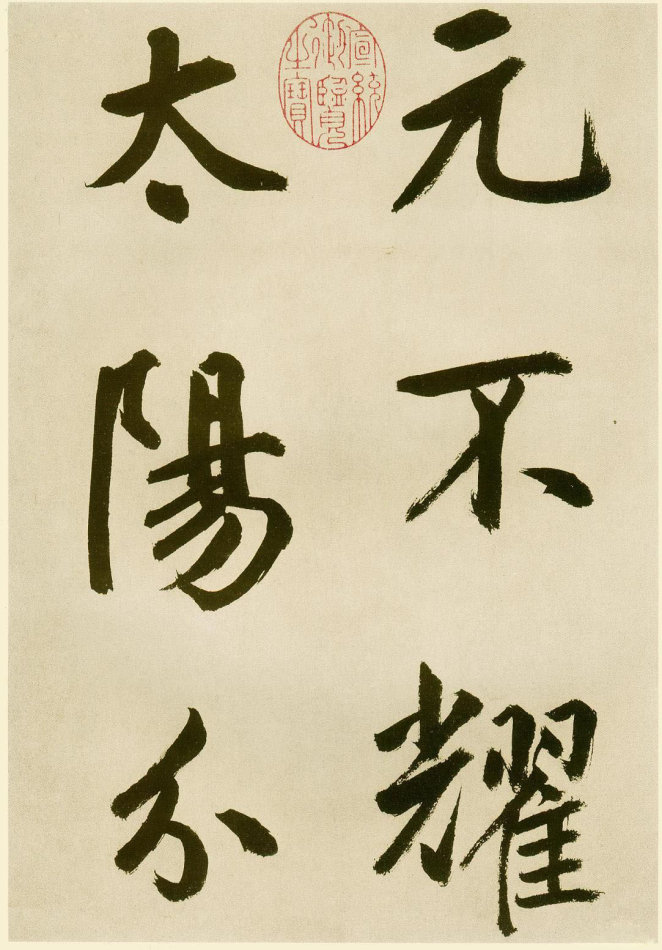 元不耀
太陽分
宣統
御覽
之寶